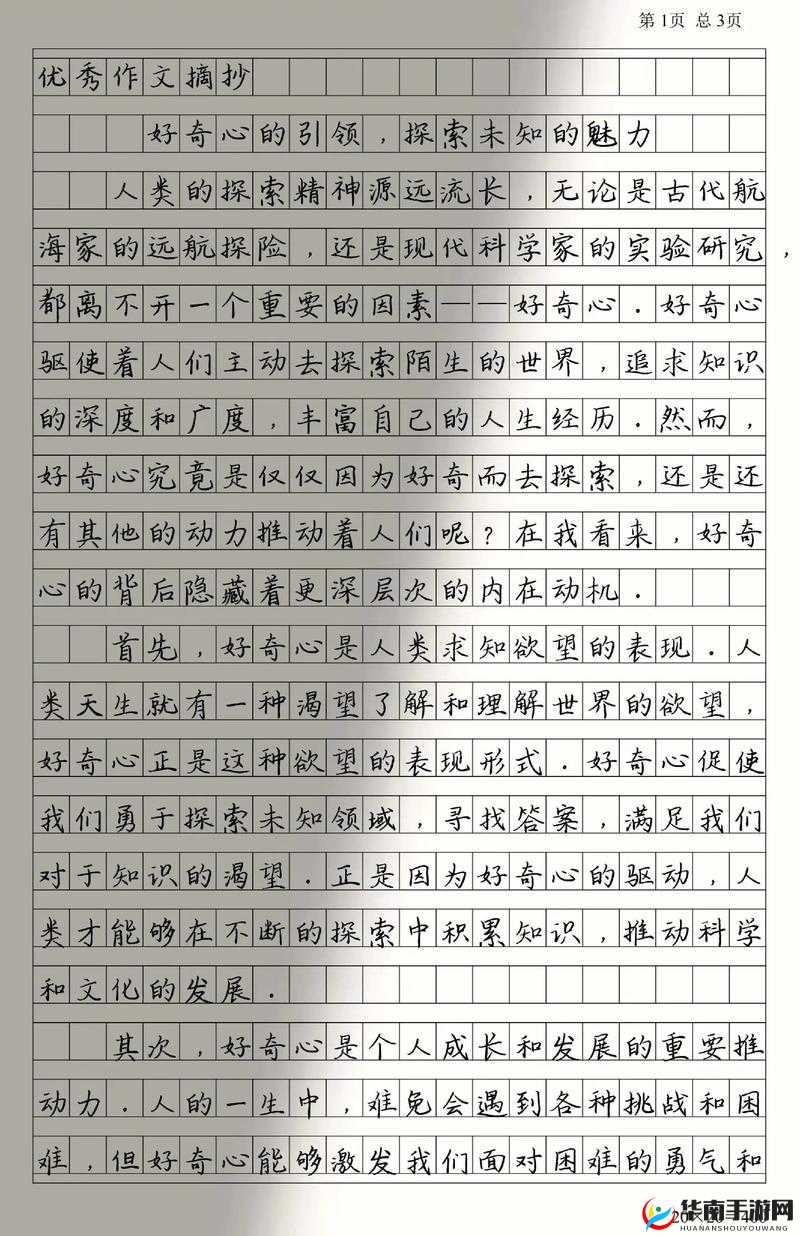 第1页 总3页
优秀作文摘抄
好奇心的引领，探索未知的魅力
人类的探索精神源远流长，无论是古代航
海家的远航探险，还是现代科学家的实验研究，
都离不开一个重要的因素——好奇心．好奇心
驱使着人们主动去探索陌生的世界，追求知识
的深度和广度，丰富自己的人生经历．然而，
好奇心究竟是仅仅因为好奇而去探索，还是还
有其他的动力推动着人们呢？在我看来，好奇
心的背后隐藏着更深层次的内在动机．
首先，好奇心是人类求知欲望的表现．人
类天生就有一种渴望了解和理解世界的欲望，
好奇心正是这种欲望的表现形式．好奇心促使
我们勇于探索未知领域，寻找答案，满足我们
对于知识的渴望．正是因为好奇心的驱动，人
类才能够在不断的探索中积累知识，推动科学
和文化的发展．
其次，好奇心是个人成长和发展的重要推
动力．人的一生中，难免会遇到各种挑战和困
难，但好奇心能够激发我们面对困难的勇气和
20×20=400
华南手游网
HUANANSHOUYOUWANG